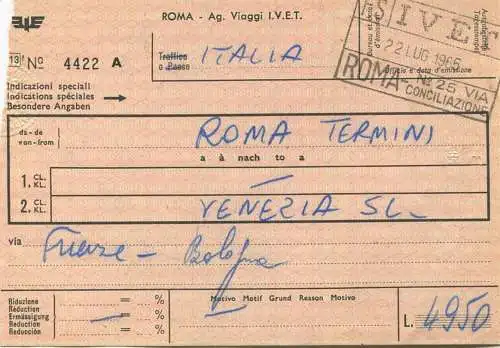 ROMA - Ag. Viaggi I.V.E.T.
SIVET
22 LUG 1966
Ufficio e data d'emissione
ROMA - Nº 25 VIA
CONCILIAZIONE
13 Nº 4422 A
Traffico
o Paese
ITALIA
Indicazioni speciali
Indications spéciales
Besondere Angaben
da-de
von-from
ROMA TERMINI
a à nach to a
1. CL.
KL.
—
2. CL.
KL.
VENEZIA SL
via
Firenze - Bologna
Riduzione
Réduction
Ermässigung
Reduction
Reducción
= %
= %
= %
Motivo Motif Grund Reason Motivo
L. 4950